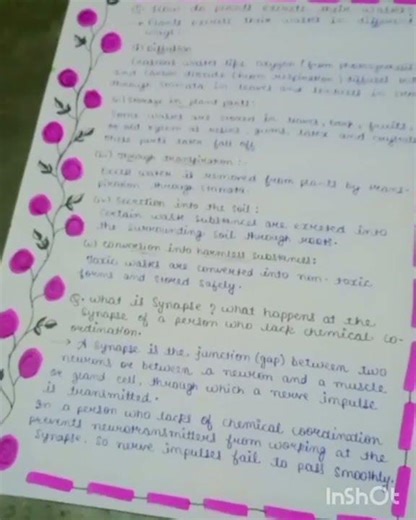 Q. How do plants excrete their wastes?
→ Plants excrete their wastes in different
ways:
(i) Diffusion
Gaseous wastes like oxygen (from photosynthesis)
and carbon dioxide (from respiration) diffuse out
through stomata in leaves and lenticels in
(ii) Storage in plant parts:
Some wastes are stored in leaves, bark, fruits,
or old xylem as resins, gums, latex and
These parts later fall off
(iii) Through transpiration:-
Excess water is removed from plants by trans-
piration through stomata.
(iv) Secretion into the soil:
Certain waste substances are excreted into
the surrounding soil through roots.
(v) conversion into harmless substances:
Toxic wastes are converted into non-toxic
forms and stored safely.
Q. What is Synapse? What happens at the
Synapse of a person who lack chemical co-
ordination.
→ A Synapse is the junction (gap) between two
neurons or between a neuron and a muscle
or gland cell, through which a nerve impulse
is transmitted.
In a person who lacks of chemical coordination
prevents neurotransmitters from working at the
Synapse. So nerve impulses fail to pass smoothly.
InShOt